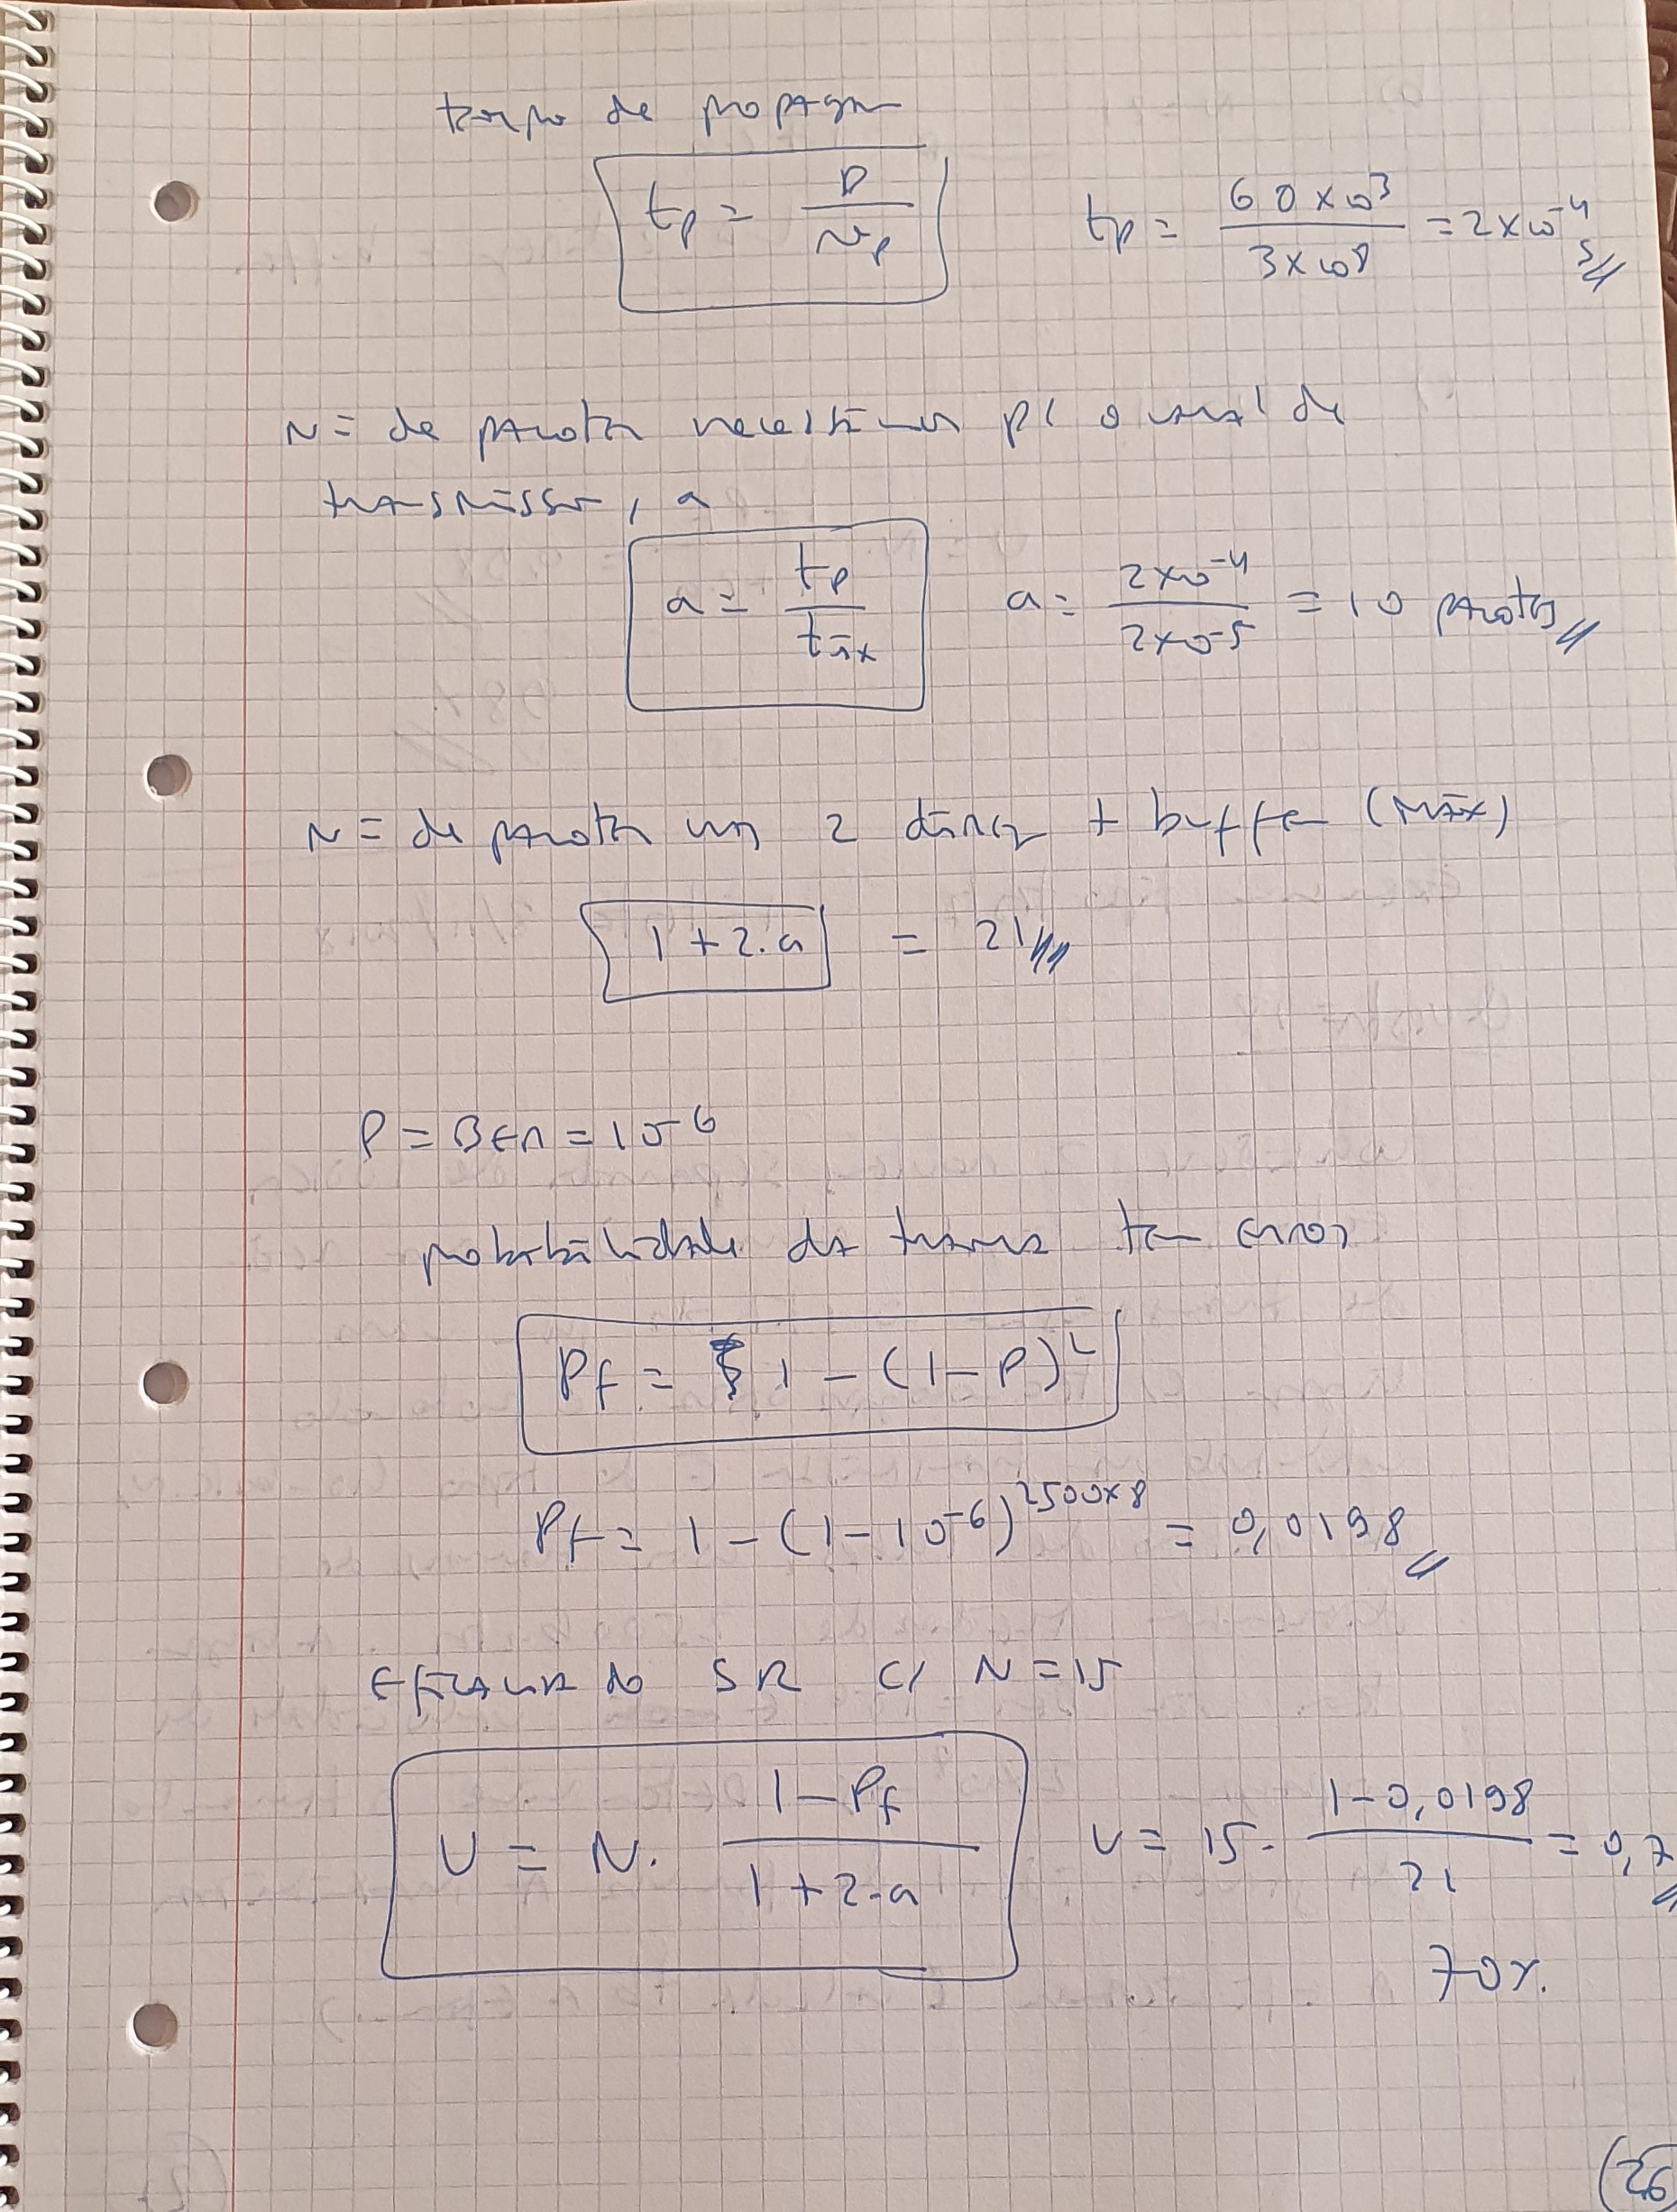 tempo de propagação
tp = D / vp tp = 60 x 10^3 / 3 x 10^8 = 2 x 10^-4 s
Nº de pacotes necessários p/ o canal de
transmissão, a
a = tp / tmáx a = 2x10^-4 / 2x10^-5 = 10 pacotes
Nº de pacotes nas 2 direcç + buffer (máx)
1 + 2.a = 21
P = BER = 10^-6
probabilidade da trama ter erros
Pf = 1 - (1 - P)^L
Pf = 1 - (1 - 10^-6)^2500x8 = 0,0198
Eficácia do SR c/ N = 15
U = N. 1 - Pf / 1 + 2.a U = 15. 1 - 0,0198 / 21 = 0,7
70%.
92)